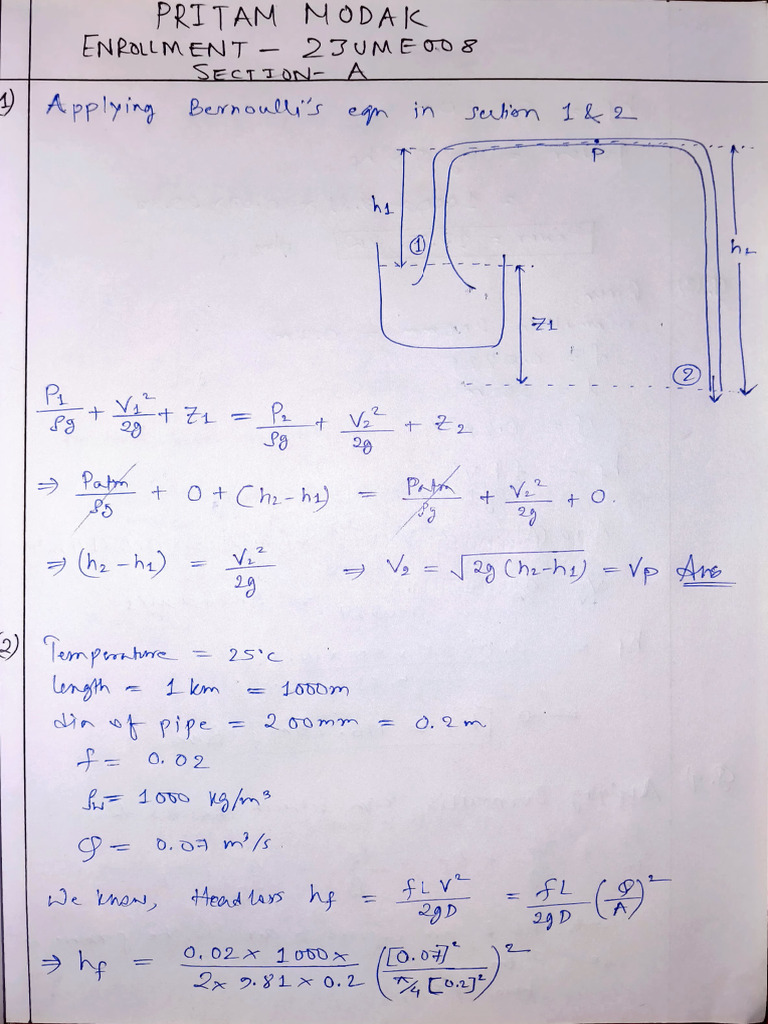 PRITAM MODAK
ENROLLMENT - 23UME008
SECTION- A
1) Applying Bernoulli's eqn in section 1 & 2
P
h1
①
h2
Z1
②
P1/ρg + V1²/2g + Z1 = P2/ρg + V2²/2g + Z2
⇒ Patm/ρg + 0 + (h2-h1) = Patm/ρg + V2²/2g + 0.
⇒ (h2-h1) = V2²/2g ⇒ V2 = √2g(h2-h1) = Vp Ans
2) Temperature = 25°C
length = 1 km = 1000m
dia of pipe = 200mm = 0.2m
f = 0.02
ρw = 1000 kg/m³
Q = 0.07 m³/s.
We know, Head loss hf = fLV²/2gD = fL/2gD (Q/A)²
⇒ hf = 0.02 × 1000 ×/2× 9.81 × 0.2 ([0.07]²/π/4 [0.2]²)²